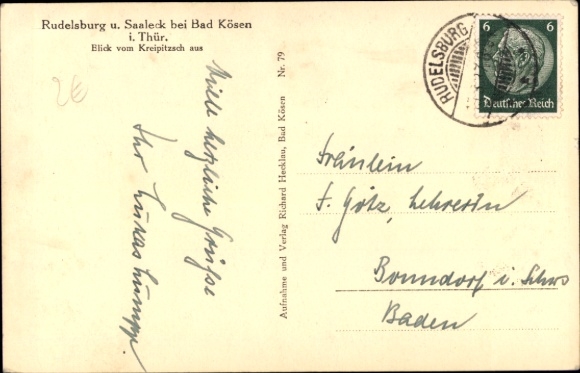 Rudelsburg u. Saaleck bei Bad Kösen
i. Thür.
Blick vom Kreipitzsch aus
2€
Viele herzliche Grüsse
Ihr Lukas
Aufnahme und Verlag Richard Hecklau, Bad Kösen Nr. 79
RUDELSBURG
6 6
Deutsches Reich
Fräulein
F. Götz, Lehrerin
Bonndorf i. Schws
Baden